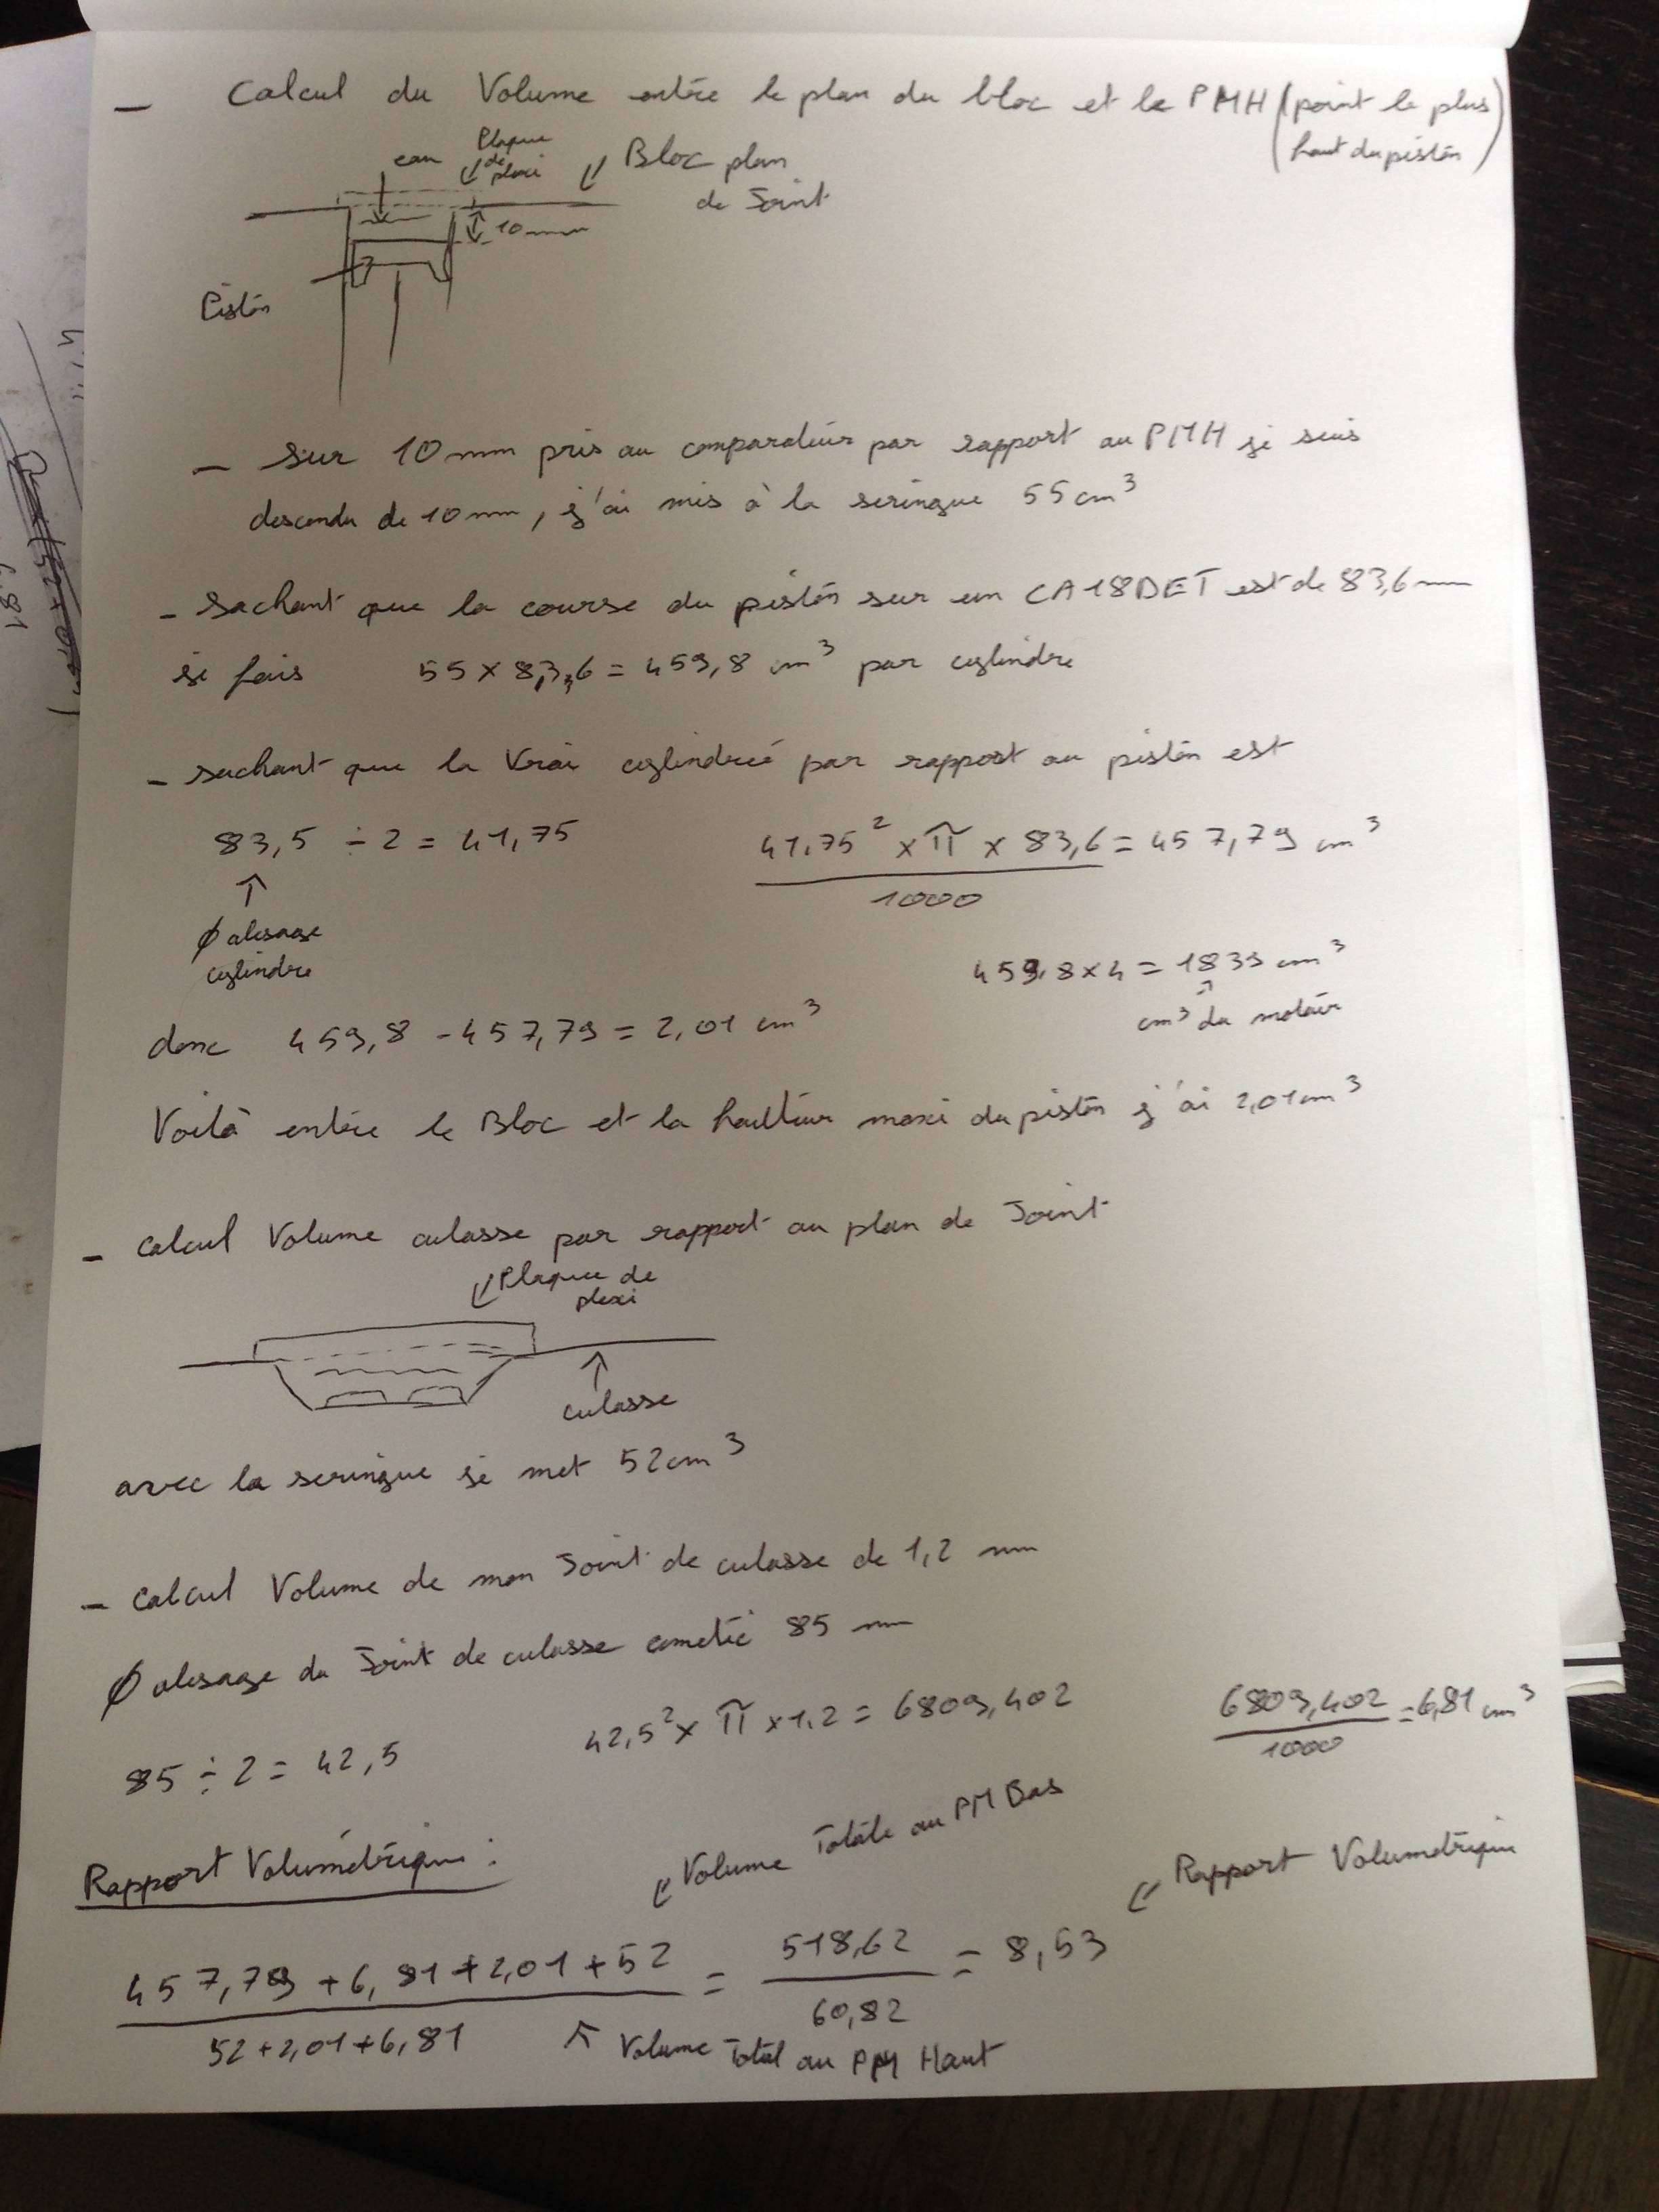 - Calcul du Volume entre le plan du bloc et le PMH (point le plus
haut du piston)
eau
Plaque
de
plexi
Bloc plan
de Joint
10 mm
Piston
- Sur 10 mm pris au comparateur par rapport au PMH je suis
descendu de 10 mm, j'ai mis à la seringue 55 cm³
- Sachant que la course du piston sur un CA18DET est de 83,6 mm
je fais 55 x 8,36 = 459,8 cm³ par cylindre
- sachant que la vrai cylindreé par rapport au piston est
83,5 ÷ 2 = 41,75
41.75² x π x 83,6 = 457,79 cm³
1000
↑
Ø alesage
cylindre
459,8 x 4 = 1839 cm³
↑
cm³ du moteur
donc 459,8 - 457,79 = 2,01 cm³
Voilà entre le Bloc et la hauteur maxi du piston j'ai 2,01 cm³
- Calcul Volume culasse par rapport au plan de Joint
Plaque de
plexi
↑
culasse
avec la seringue je met 52 cm³
- Calcul Volume de mon Joint de culasse de 1,2 mm
Ø alesage du Joint de culasse cometic 85 mm
85 ÷ 2 = 42,5
42,5² x π x 1,2 = 6809,402
6809,402 = 6,81 cm³
1000
Rapport Volumétrique :
Volume Totale au PM Bas
Rapport Volumetrique
457,79 + 6,81 + 2,01 + 52 = 518,62 = 8,53
52 + 2,01 + 6,81
60,82
Volume Total au PM Haut